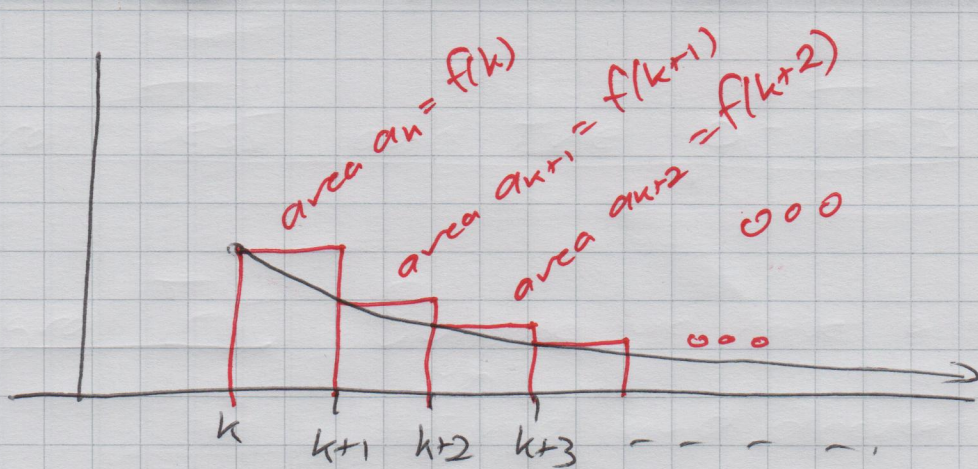 area ak = f(k)
area ak+1 = f(k+1)
area ak+2 = f(k+2)
k k+1 k+2 k+3